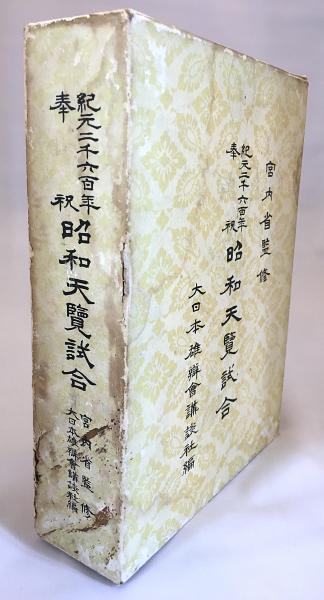 宮内省監修
紀元二千六百年
奉祝
昭和天覧試合
大日本雄辯會講談社編
紀元二千六百年
奉祝
昭和天覽試合
宮内省監修
大日本雄辯會講談社編